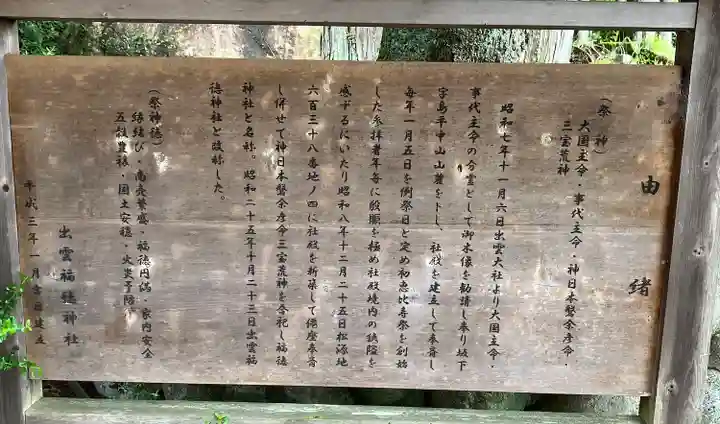 由緒
(祭神)
大国主命・事代主命・神日本磐余彦命・
三宝荒神
昭和七年十一月六日出雲大社より大国主命・
事代主命の分霊として御木像を勧請し奉り坂下
字島平中山山麓をトし、社殿を建立して奉斎し
毎年一月五日を例祭日と定め初恵比寿祭を創始
した参拝者年毎に殷賑を極め社殿境内の狭隘を
感ずるにいたり昭和八年十二月二十五日松源地
六百三十八番地ノ四に社殿を新築して傳座奉斎
し併せて神日本磐余彦命三宝荒神を合祀し福徳
神社と名称。昭和二十五年十月二十三日出雲福
徳神社と改称した。
(祭神徳)
縁結び・商売繁盛・福徳円満・家内安全
五穀豊穣・国土安穏・火災予防
出雲福徳神社
平成三年一月吉日建立